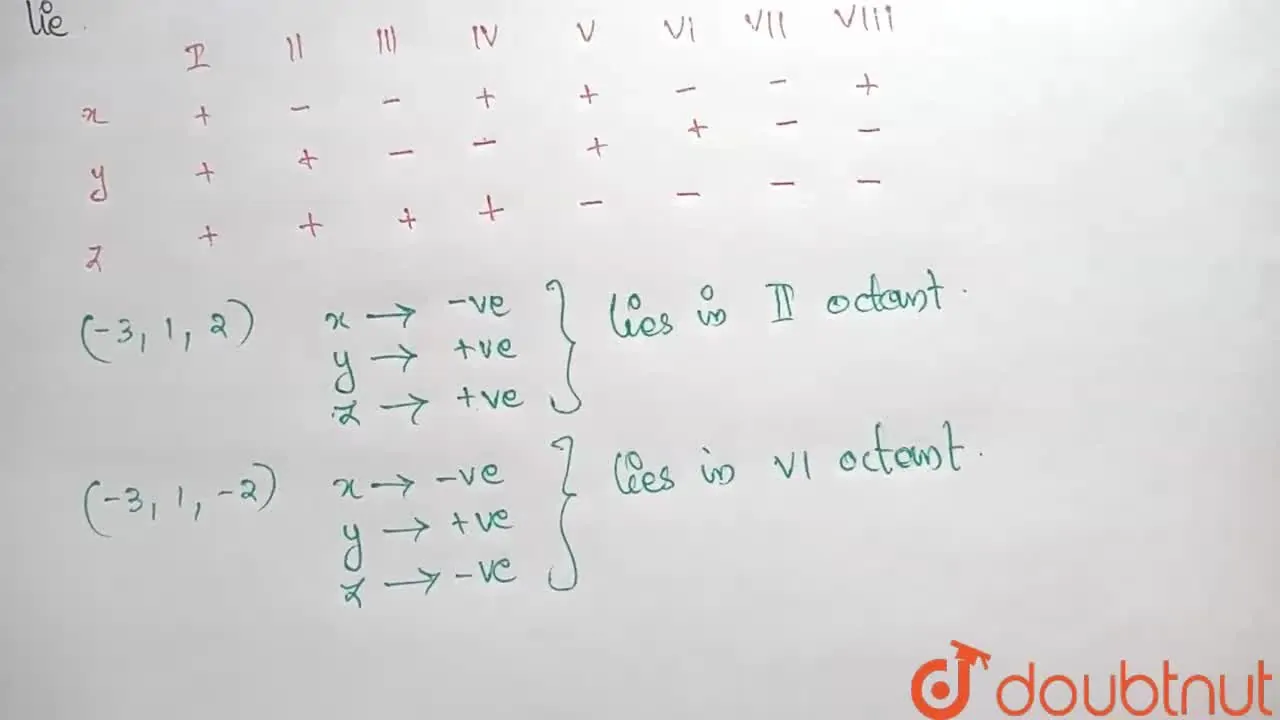 lie.
I II III IV V VI VII VIII
x + - - + + - - +
y + + - - + + - -
z + + + + - - - -
(-3, 1, 2) x → -ve } lies in II octant.
y → +ve
z → +ve
(-3, 1, -2) x → -ve } lies in VI octant.
y → +ve
z → -ve
doubtnut